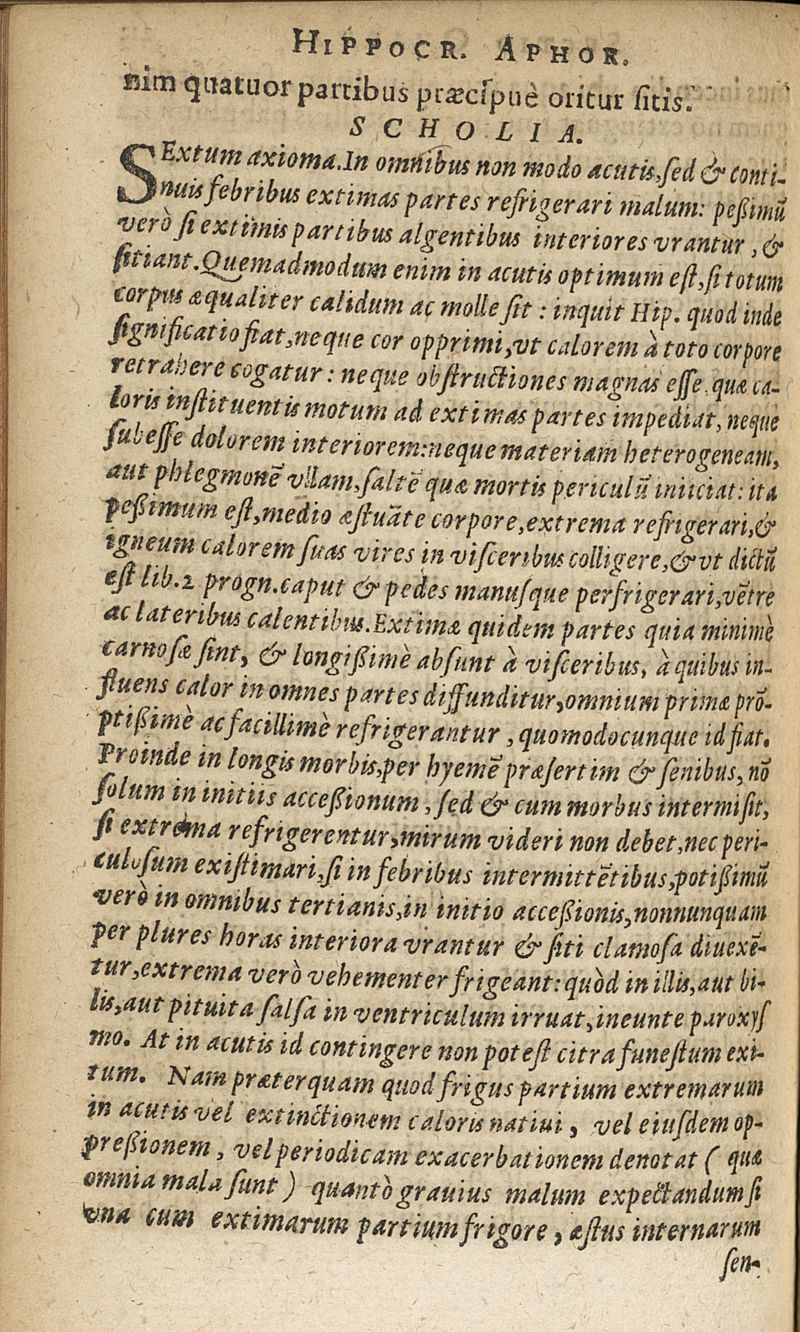 HIPPOCR. APHOR.
nim quatuor partibus præcipuè oritur ſitis.
SCHOLIA.
SExtum axioma. In omnibus non modo acutis, ſed & conti-
nuis febribus extimas partes refrigerari malum: peßimũ
verò ſi extimis partibus algentibus interiores vrantur, &
ſitiant. Quemadmodum enim in acutis optimum eſt, ſi totum
corpus æqualiter calidum ac molle ſit: inquit Hip. quod inde
ſignificatio fiat, neque cor opprimi, vt calorem à toto corpore
retrahere cogatur: neque obſtructiones magnas eſſe, quæ ca-
loris inſtituentis motum ad extimas partes impediat, neque
ſubeſſe dolorem interiorem: neque materiam heterogeneam,
aut phlegmonẽ vllam, ſaltẽ quæ mortis periculũ iniiciat: ita
peßimum eſt, medio æſtuãte corpore, extrema refrigerari, &
igneum calorem ſuas vires in viſceribus colligere, & vt dictũ
eſt lib. 2 progn. caput & pedes manuſque perfrigerari, vẽtre
ac lateribus calentibus. Extimæ quidem partes quia minimè
carnoſæ ſint, & longißimè abſunt à viſceribus, à quibus in-
fluens calor in omnes partes diffunditur, omnium primæ prõ-
ptißimè ac facillimè refrigerantur, quomodocunque id fiat.
Proinde in longis morbis, per hyemẽ præſertim & ſenibus, nõ
ſolum in initiis acceßionum, ſed & cum morbus intermiſit,
ſi extrema refrigerentur, mirum videri non debet, nec peri-
culoſum exiſtimari, ſi in febribus intermittẽtibus, potißimũ
verò in omnibus tertianis, in initio acceßionis, nonnunquam
per plures horas interiora vrantur & ſiti clamoſa diuexẽ-
tur, extrema verò vehementer frigeant: quòd in illis, aut bi-
lis, aut pituita ſalſa in ventriculum irruat, ineunte paroxyſ
mo. At in acutis id contingere non poteſt citra funeſtum exi-
tum. Nam præterquam quod frigus partium extremarum
in acutis vel extinctionem caloris natiui, vel eiuſdem op-
preßionem, vel periodicam exacerbationem denotat ( quæ
omnia mala ſunt ) quantò grauius malum expectandum ſi
vna cum extimarum partium frigore, æſtus internarum
ſen-